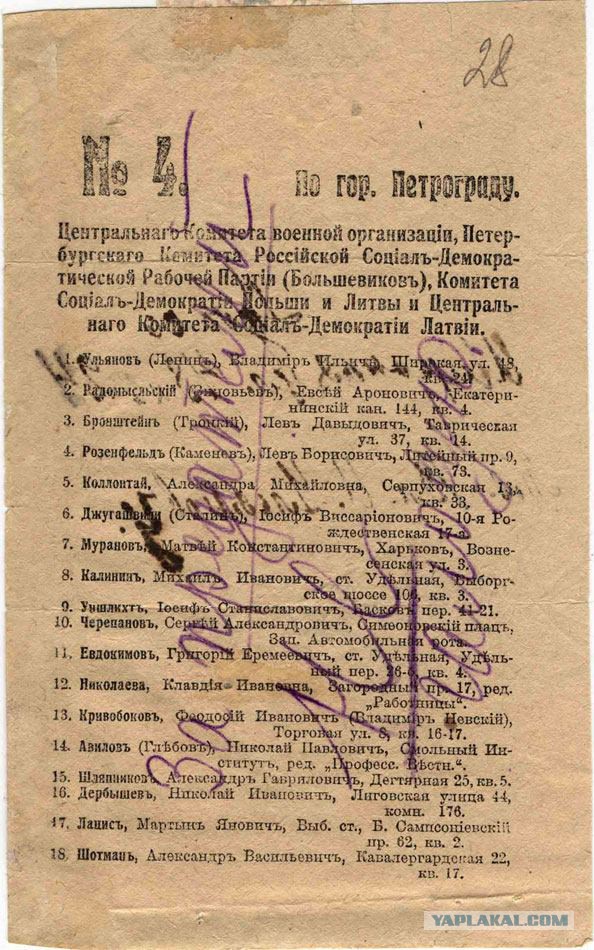 28
№ 4.
По гор. Петрограду.
Центральнаго Комитета военной организаціи, Петер-
бургскаго Комитета Россійской Соціалъ-Демокра-
тической Рабочей Партіи (Большевиковъ), Комитета
Соціалъ-Демократіи Польши и Литвы и Централь-
наго Комитета Соціалъ-Демократіи Латвіи.
1. Ульяновъ (Ленинъ), Владиміръ Ильичъ, Широкая, ул. 48,
кв. 24.
2. Радомысльскій (Зиновьевъ), Евсѣй Ароновичъ, Екатери-
нинскій кан. 144, кв. 4.
3. Бронштейнъ (Троцкій), Левъ Давыдовичъ, Таврическая
ул. 37, кв. 14.
4. Розенфельдъ (Каменевъ), Левъ Борисовичъ, Литейный пр. 9,
кв. 73.
5. Коллонтай, Александра Михайловна, Серпуховская 13,
кв. 33.
6. Джугашвили (Сталинъ), Іосифъ Виссаріоновичъ, 10-я Ро-
ждественская 17-а.
7. Мурановъ, Матвѣй Константиновичъ, Харьковъ, Возне-
сенская ул. 3.
8. Калининъ, Михаилъ Ивановичъ, ст. Удѣльная, Выборг-
ское шоссе 106, кв. 3.
9. Уншлихтъ, Іосифъ Станиславовичъ, Басковъ пер. 41-21.
10. Черепановъ, Сергѣй Александровичъ, Симеоновскій плацъ,
Зап. Автомобильная рота.
11. Евдокимовъ, Григорій Еремеевичъ, ст. Удѣльная, Удѣль-
ный пер. 26-6, кв. 4.
12. Николаева, Клавдія Ивановна, Загородный пр. 17, ред.
„Работницы“.
13. Кривобоковъ, Феодосій Ивановичъ (Владиміръ Невскій),
Торговая ул. 8, кв. 16-17.
14. Авиловъ (Глѣбовъ), Николай Павловичъ, Смольный Ин-
ститутъ, ред. „Професс. Вѣстн.“.
15. Шляпниковъ, Александръ Гавриловичъ, Дегтярная 25, кв. 5.
16. Дербышевъ, Николай Ивановичъ, Лиговская улица 44,
комн. 176.
17. Лацисъ, Мартынъ Яновичъ, Выб. ст., Б. Сампсоніевскій
пр. 62, кв. 2.
18. Шотманъ, Александръ Васильевичъ, Кавалергардская 22,
кв. 17.
За
YAPLAKAL.COM